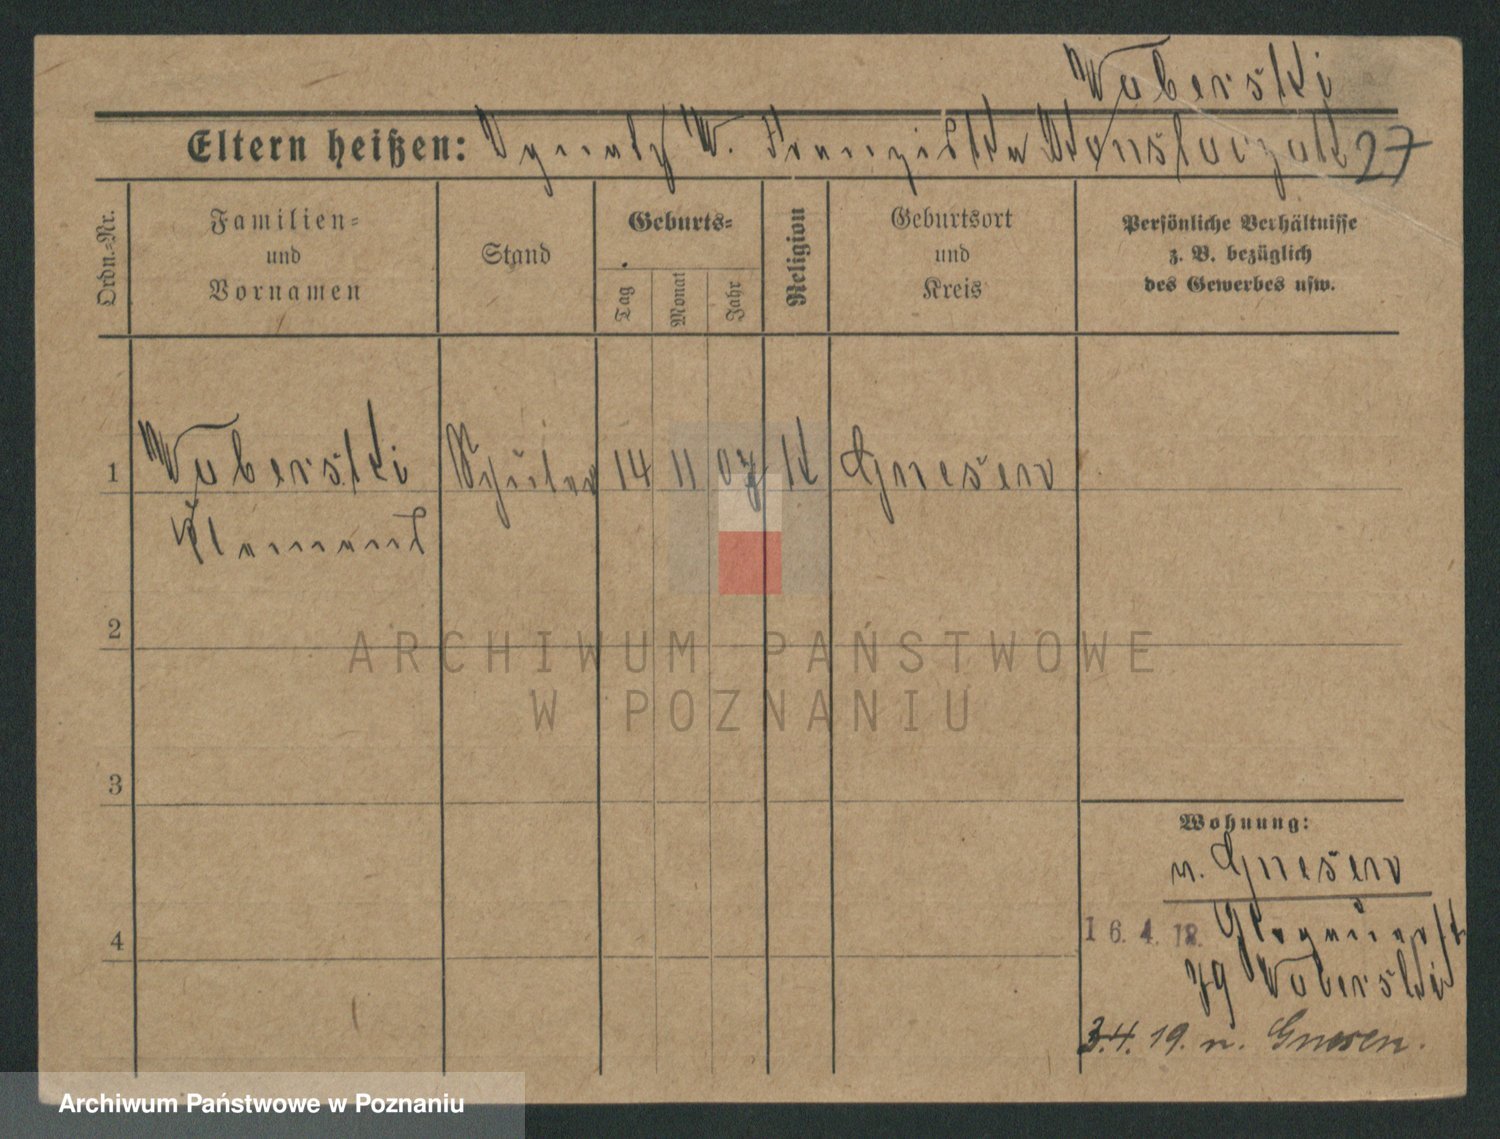 Waberski
Eltern heißen: Ignatz W. Franziska 27
Ordn.=Nr.
Familien=
und
Vornamen
Stand
Geburts=
Tag
Monat
Jahr
Religion
Geburtsort
und
Kreis
Persönliche Verhältnisse
z. B. bezüglich
des Gewerbes usw.
1 Waberski Schüler 14 11 07 K Gnesen
Klemens
2
3
4
Wohnung:
n. Gnesen
16. 4. 18.
79 Waberski
3.4. 19. n. Gnesen.
ARCHIWUM PAŃSTWOWE
W POZNANIU
Archiwum Państwowe w Poznaniu